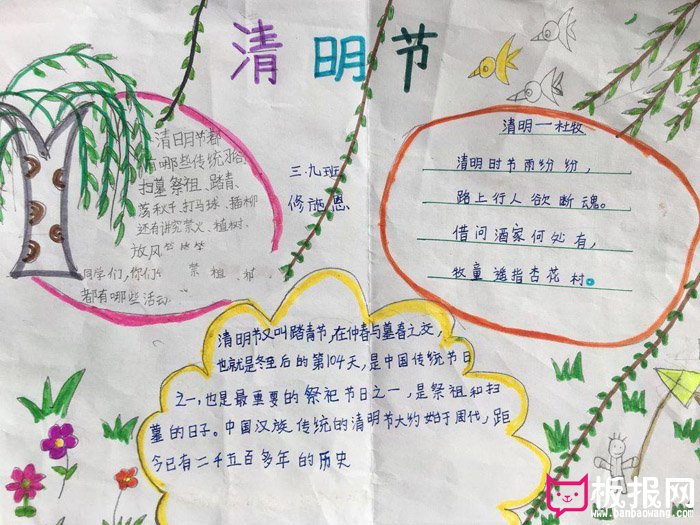 清明节
清明节都
有哪些传统习俗
扫墓祭祖、踏青、
荡秋千、打马球、插柳
还有讲究禁火、植树、
放风筝
同学们,你们
都有哪些活动
三.九班
修施恩
清明—杜牧
清明时节雨纷纷,
路上行人欲断魂。
借问酒家何处有,
牧童遥指杏花村。
清明节又叫踏青节,在仲春与暮春之交,
也就是冬至后的第104天,是中国传统节日
之一,也是最重要的祭祀节日之一,是祭祖和扫
墓的日子。中国汉族传统的清明节大约始于周代,距
今已有二千五百多年的历史
板报网
www.banbaowang.com